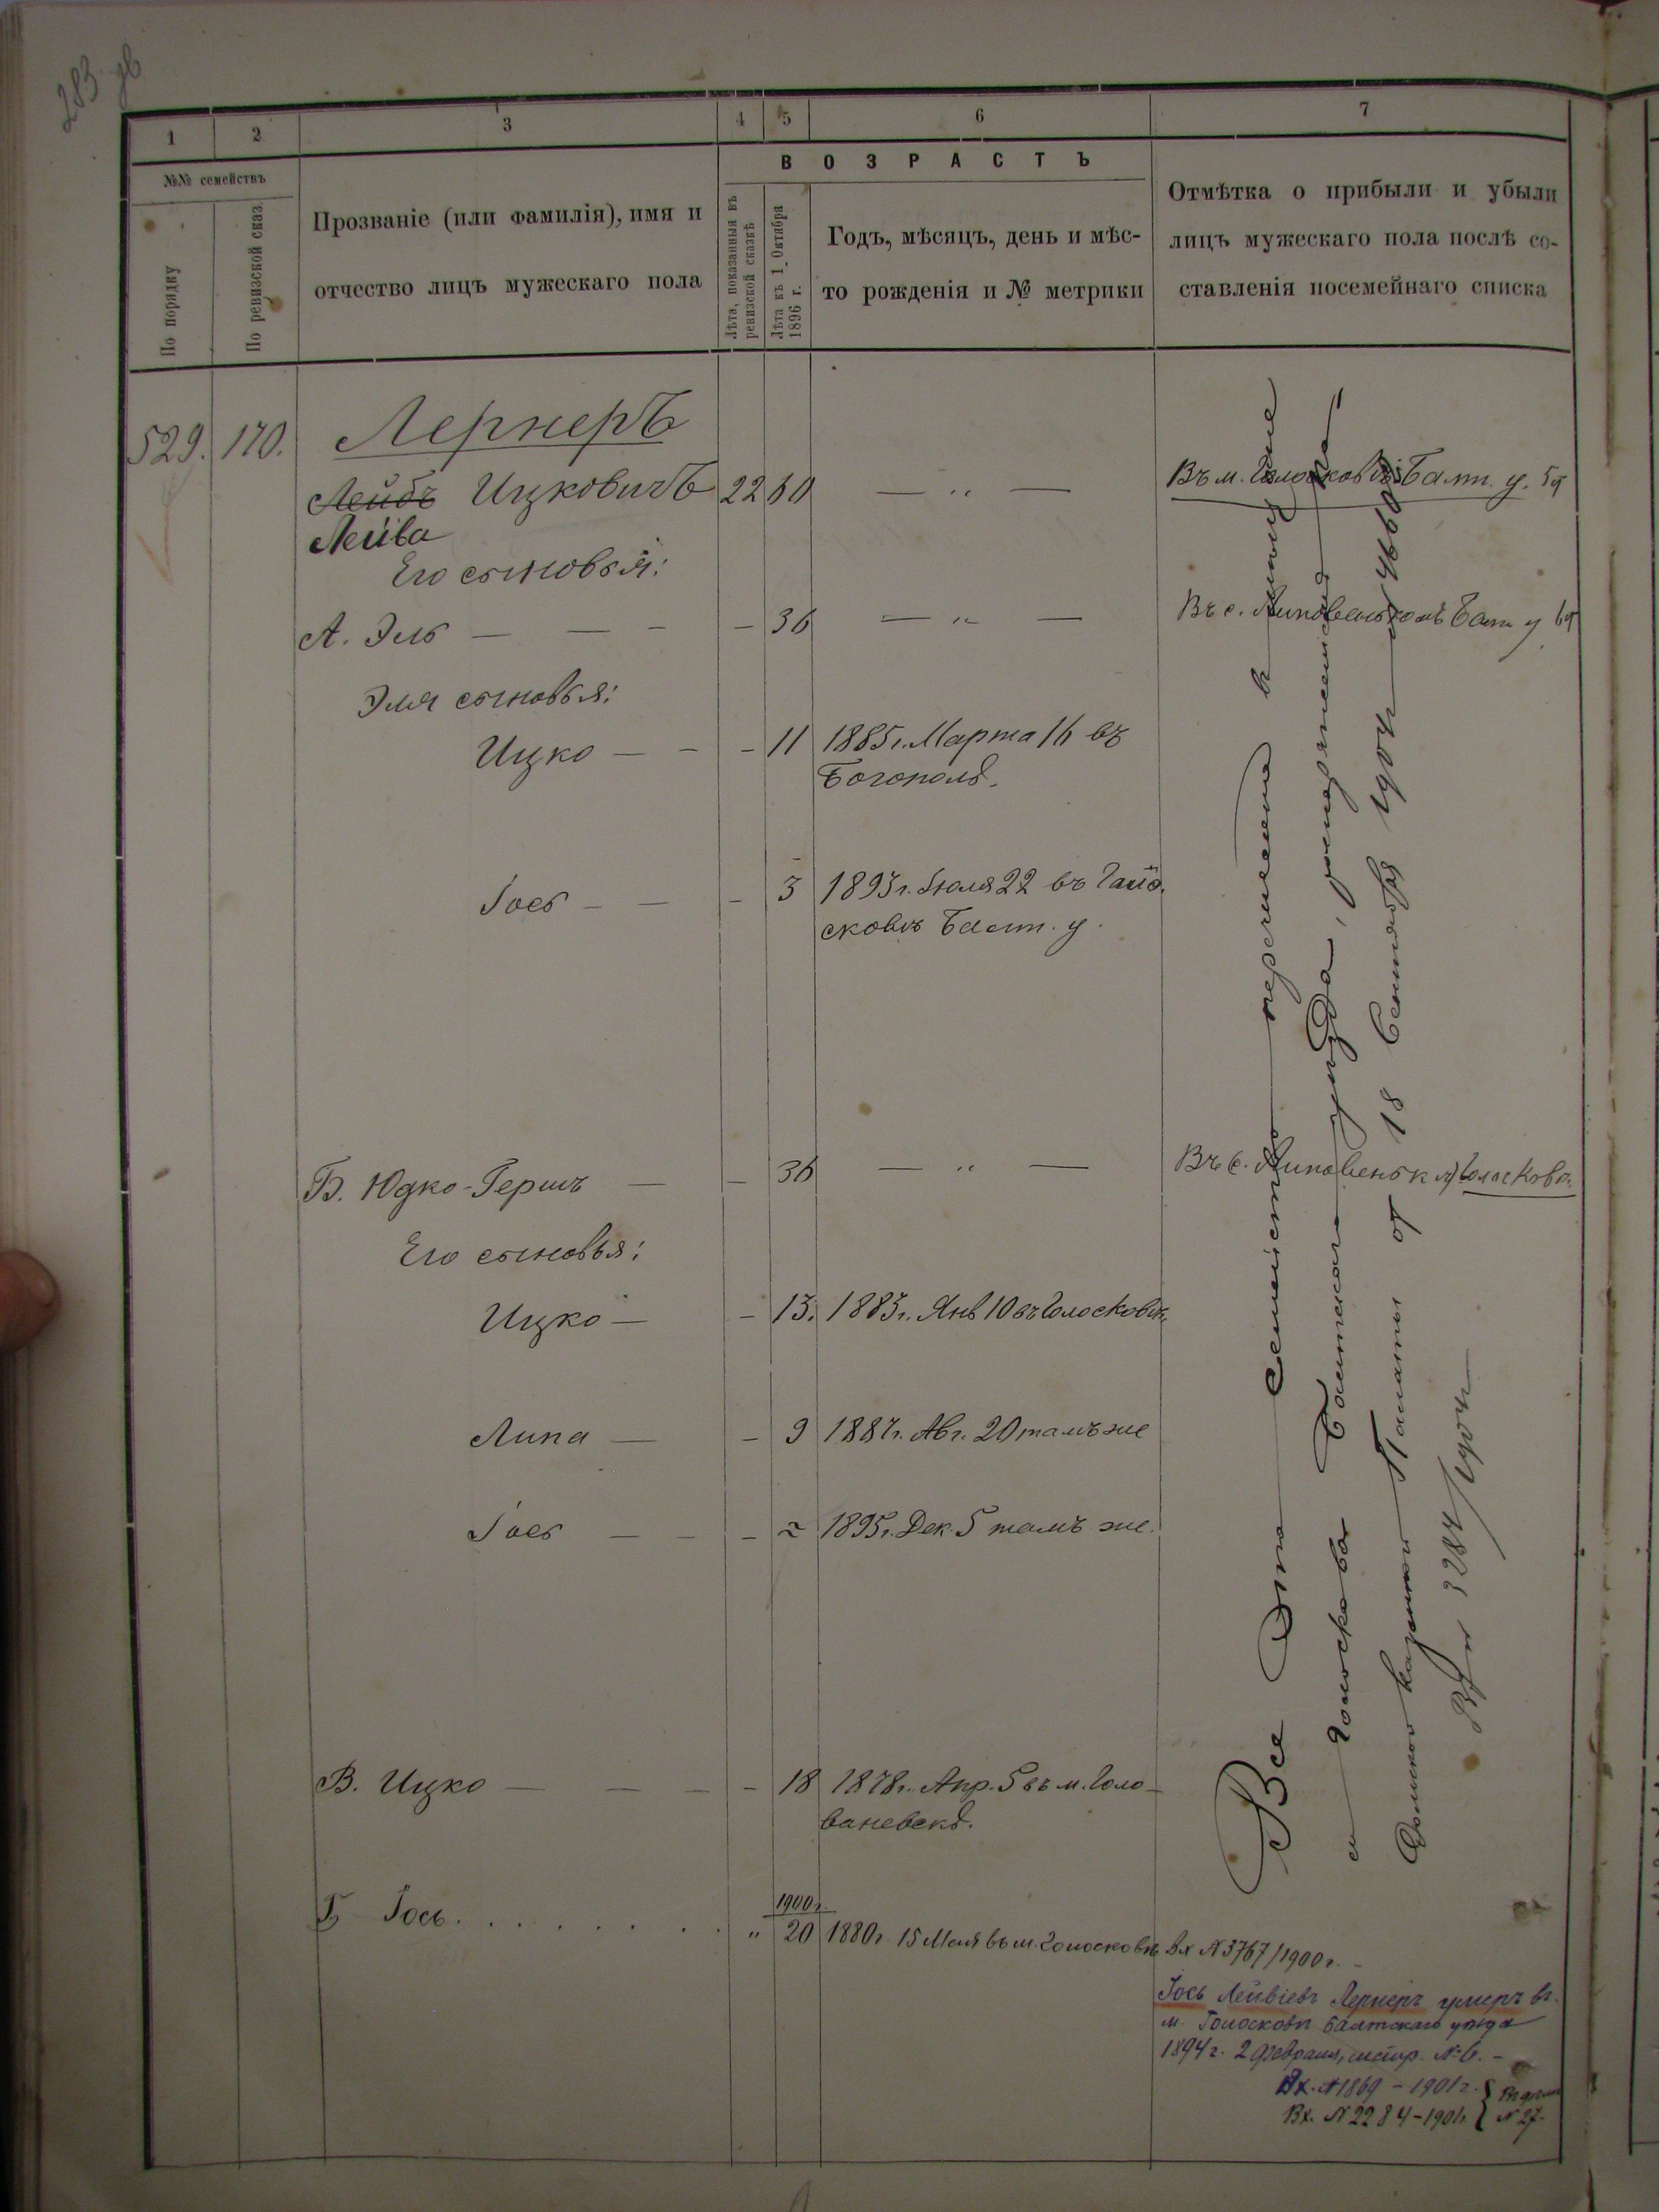 283 дв
1 2 3 4 5 6 7
№№ семействъ
По порядку
По ревизской сказ.
Прозваніе (или фамилія), имя и
отчество лицъ мужескаго пола
ВОЗРАСТЪ
Лѣта, показанныя въ
ревизской сказкѣ
Лѣта къ 1 Октября
1896 г.
Годъ, мѣсяцъ, день и мѣс-
то рожденія и № метрики
Отмѣтка о прибыли и убыли
лицъ мужескаго пола послѣ со-
ставленія посемейнаго списка
529. 170. Лернеръ
Лейбъ Ицковичъ 22 60 — „ — Въ м. Голосковѣ Балт. у.
Лейва
Его сыновья:
А. Эль — — — — 36 — „ — Въ с. Липовенькомъ Балт у
Эля сыновья:
Ицко — — — 11 1885 г. Марта 16 въ
Богополѣ.
Іось — — — 3 1893 г. Іюля 22 въ
сковѣ Балт. у.
Б. Юдко-Гершъ — — 36 — „ — Въ с. Липовеньк Голосковъ
Его сыновья:
Ицко — — 13. 1883 г. Янв 10 въ Голосковѣ
Липа — — 9 1887 г. Авг. 20 тамъ же
Іось — — — 1895 г. Дек. 5 тамъ же.
В. Ицко — — — — 18 1878 г. Апр. 5 въ м. Голо-
ваневскѣ.
1900 г.
Іось. . . . . . . . „ 20 1880 г. 15 Мая въ м. Голосковѣ Вх N 3767/1900 г.
Іось Лейвіевъ Лернеръ умеръ въ
м. Голосковѣ Балтскаго уѣзда
1894 г. 2 февраля, метр. № 6. –
Вх. N 1869 – 1901 г.
Вх. N 2284 – 1901 г. N 27.
Все это семейство перечислено в
м Голосково Балтскаго уѣзда,
казенной Палаты от 18 Сентября 1904 г
3284/1904 г